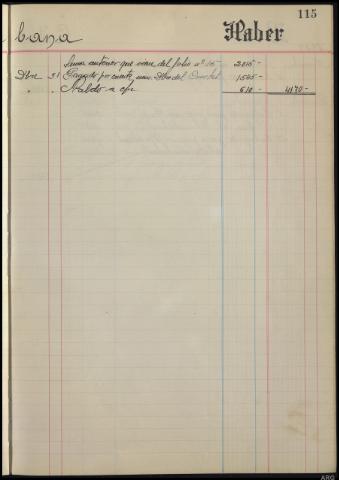 115
bana Haber
Suma anterior que viene del folio nº 15 - 2015 -
Dbre 31 Pagado por cuenta, mes Dbre del 1545 -
" . Saldo a c/n 610 - 4170 -
ARG